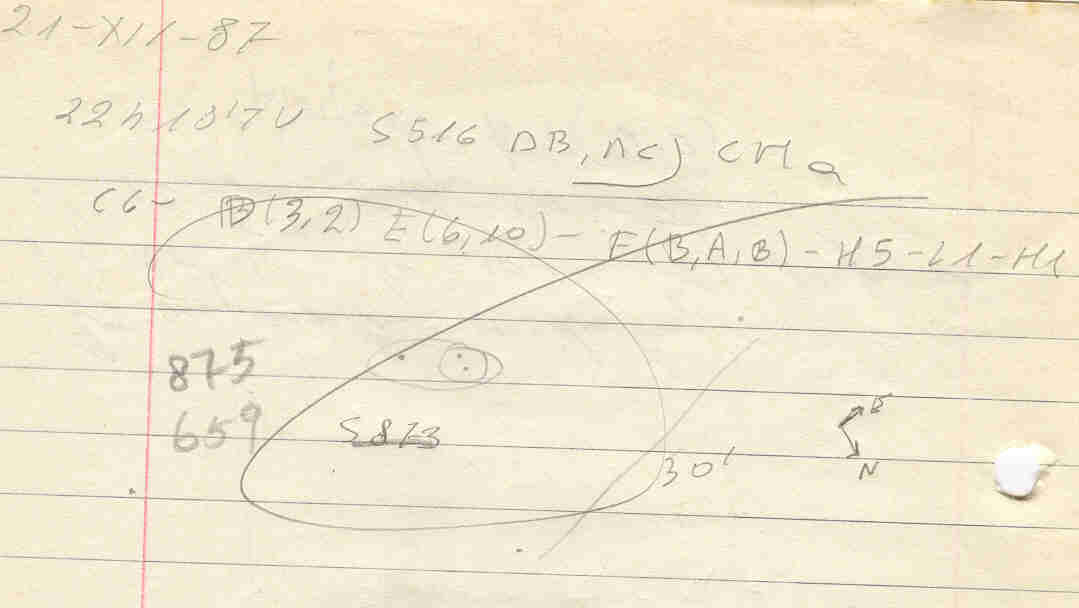 21-XII-87
22h18'TU S516 DB, NC) CMa
C6- D(3,2) E(6,10)- F(B,A,B)-H5-L1-H1
875
659
S873
30'
E
N